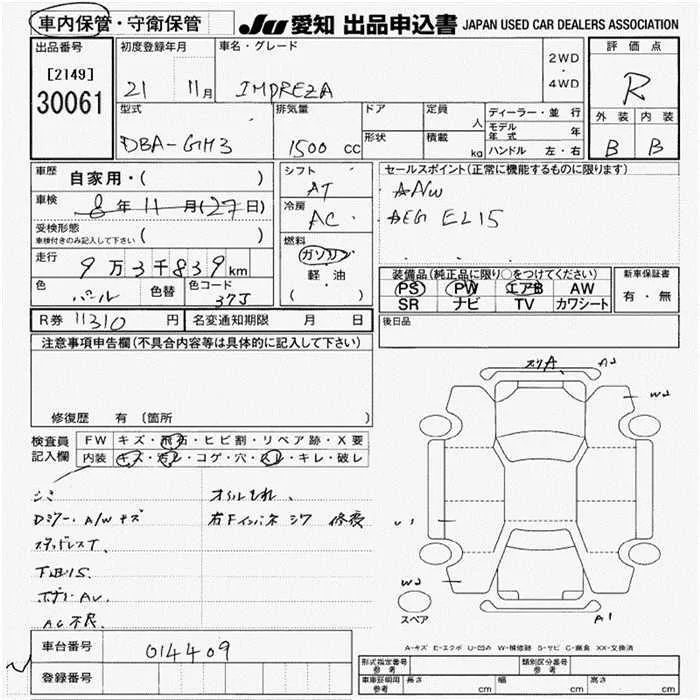 車内保管・守衛保管
JU 愛知 出品申込書 JAPAN USED CAR DEALERS ASSOCIATION
出品番号 初度登録年月 車名・グレード 2WD ・ 4WD 評価点
[2149] 21 11月 IMPREZA R
30061
型式 排気量 ドア 定員 人 ディーラー・並行 外装 内装
DBA-GH3 1500 cc 形状 積載 kg モデル年式 年 B B
ハンドル 左・右
車歴 自家用・( ) シフト AT セールスポイント(正常に機能するものに限ります)
車検 8年11月(27日) 冷房 AC A/W
受検形態 車検付きのみ記入して下さい ( ) EL15
燃料 ガソリン 軽油 ( )
走行 9万3千839km
装備品(純正品に限り○をつけてください) 新車保証書
色 パール 色替 色コード 37J PS PW エアB AW 有・無
SR ナビ TV カワシート
R券 11310 円 名変通知期限 月 日 後日品
注意事項申告欄(不具合内容等は具体的に記入して下さい)
修復歴 有 〔箇所
A2
W2
検査員記入欄 FW キズ・飛石・ヒビ割・リペア跡・X要
内装 キズ・汚レ・コゲ・穴・スレ・キレ・破レ
オイルもれ、
A/Wキズ 右Fインパネ シワ 修復
スタッドレスT、
AC不良
W2
スペア
A1
A-キズ E-エクボ U-凹み W-補修跡 S-サビ C-腐食 XX-交換済
車台番号 014409
登録番号
形式指定番号 参考 類別区分番号 参考
車庫証明用 参考 長さ cm 幅 cm 高さ cm